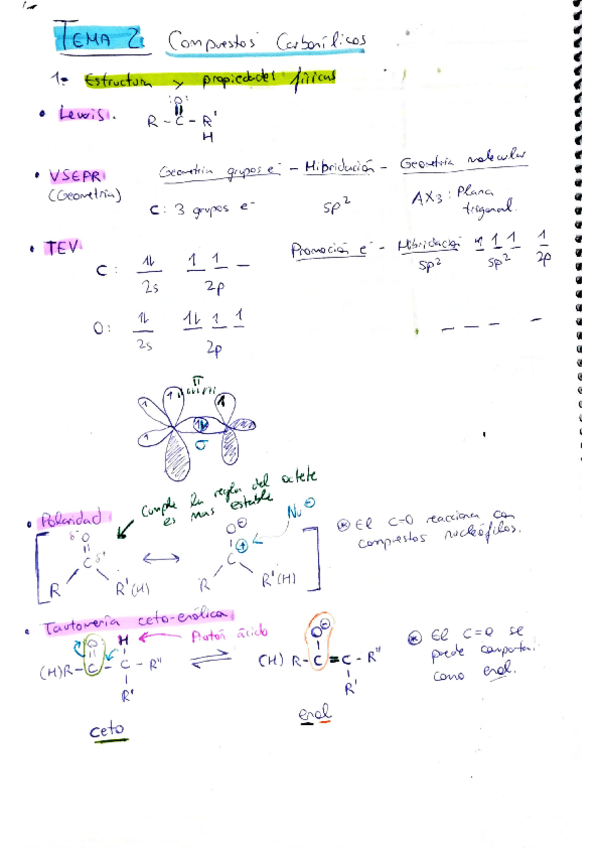 TEMA 2. Compuestos Carbonílicos
1.- Estructura y propiedades físicas
• Lewis.
:O:
R - C - R'
H
• VSEPR (Geometría)
Geometría grupos e⁻ - Hibridación - Geometría molecular
C: 3 grupos e⁻ sp² AX3: Plana trigonal.
• TEV.
Promoción e⁻ - Hibridación
sp² sp² 2p
C: 2s 2p
O: 2s 2p
π
σ
• Polaridad
Cumple la regla del octete
es mas estable
Nu⊖
δ⁻ O
C δ⁺
R R'(H)
O⊖
C ⊕
R R'(H)
⊛ El C-O reacciona con
compuestos nucleófilos.
• Tautomería ceto-enólica
O H Protón ácido
(H)R - C - C - R"
R'
ceto
O⊖
(H) R - C = C - R"
R'
enol
⊛ El C=O se
puede comportar
como enol.